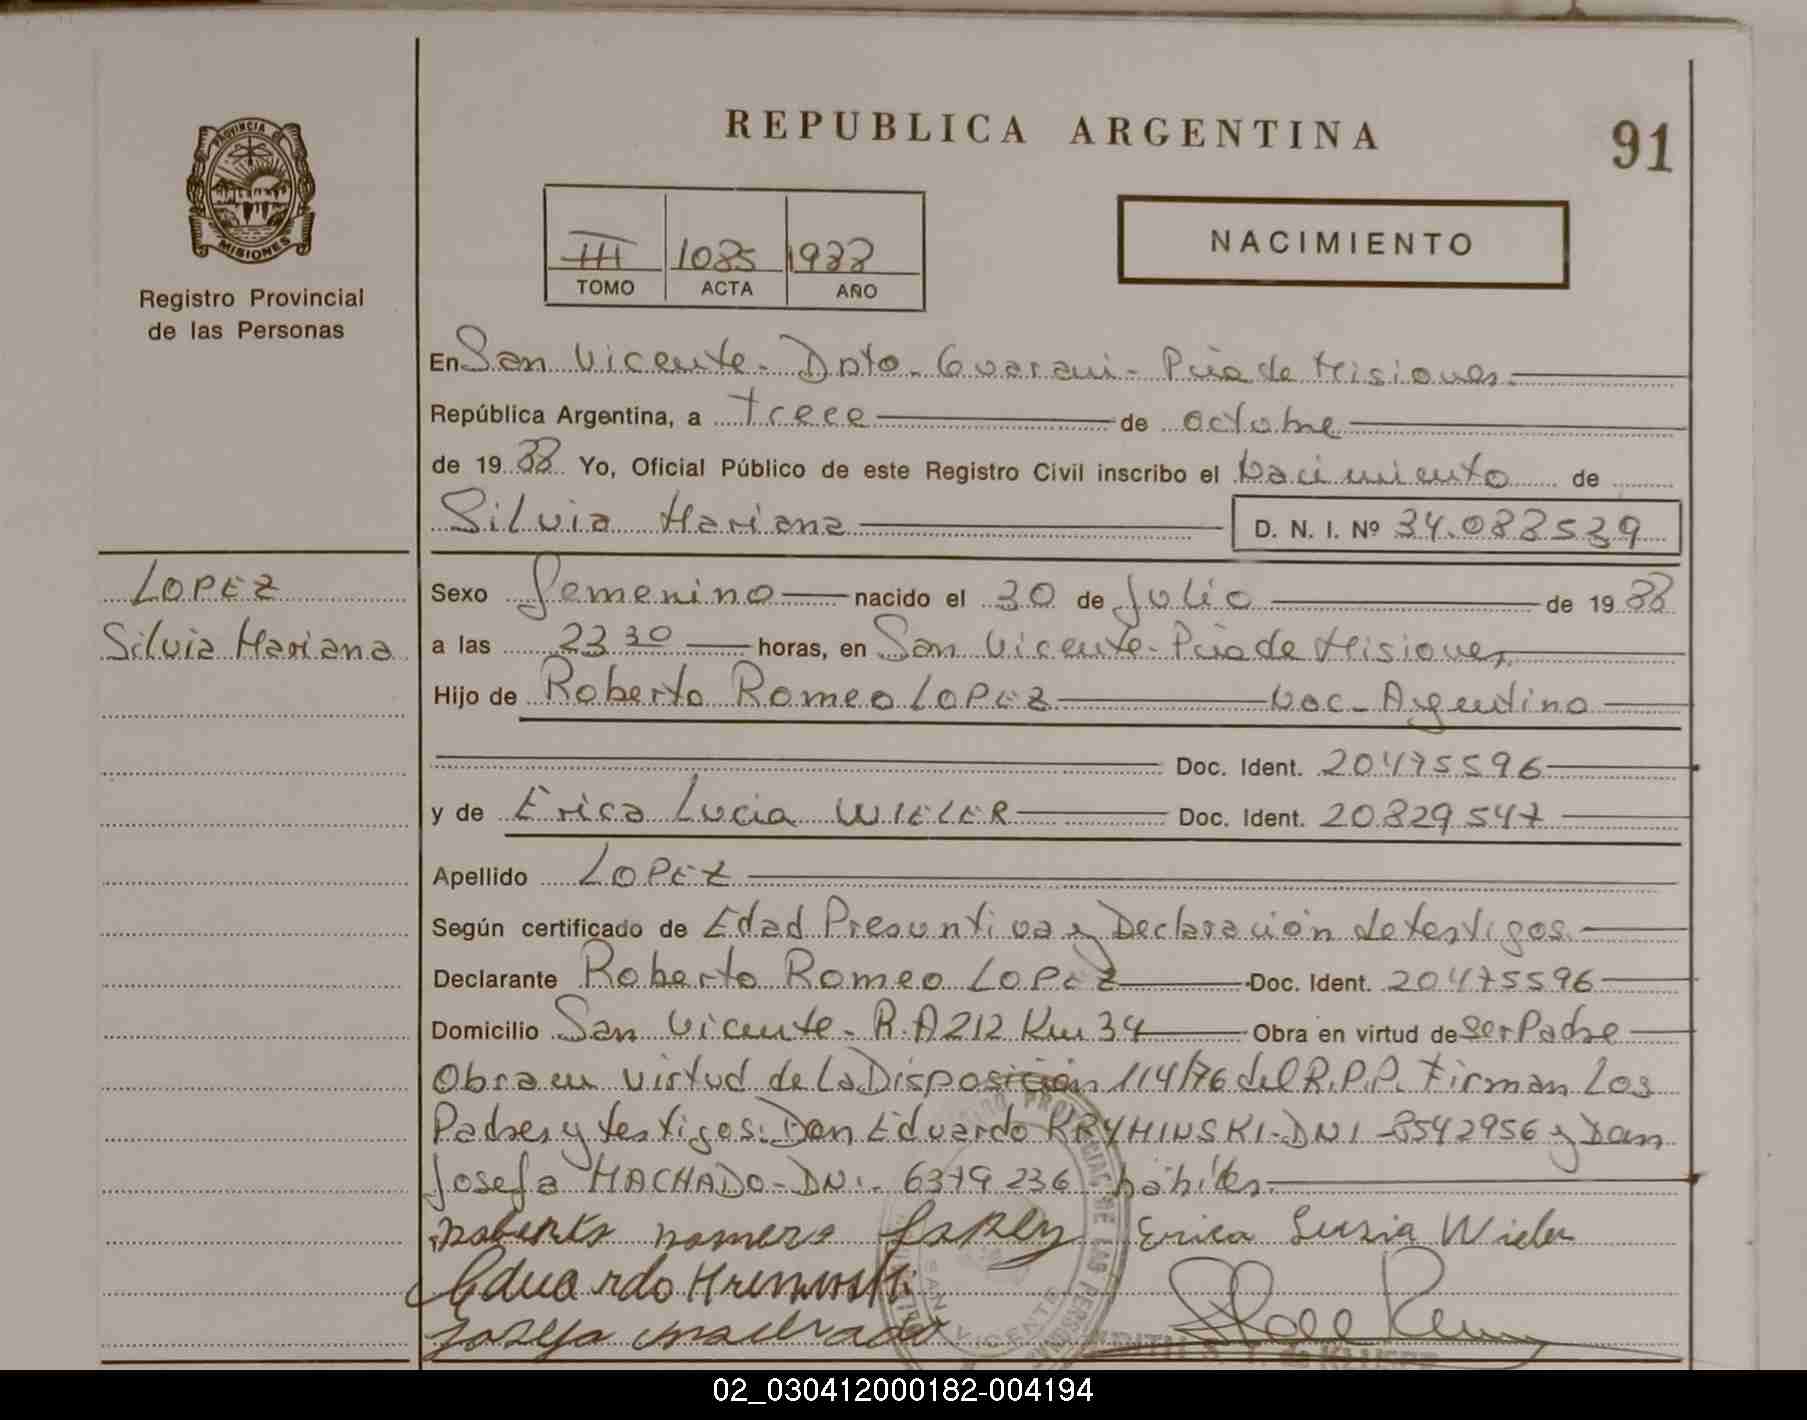 REPUBLICA ARGENTINA
91
PROVINCIA DE
MISIONES
Registro Provincial
de las Personas
III 1085 1988
TOMO ACTA AÑO
NACIMIENTO
En San Vicente - Dpto - Guarani - Pcia de Misiones.
República Argentina, a trece de octubre
de 1988 Yo, Oficial Público de este Registro Civil inscribo el Nacimiento de
Silvia Mariana D. N. I. Nº 34.088539
LOPEZ
Silvia Mariana
Sexo femenino nacido el 30 de Julio de 1988
a las 23 30 horas, en San Vicente - Pcia de Misiones
Hijo de Roberto Romeo LOPEZ Nac - Argentino
Doc. Ident. 20475596
y de Erica Lucia WIELER Doc. Ident. 20829547
Apellido LOPEZ
Según certificado de Edad Presuntiva y Declaración de testigos.
Declarante Roberto Romeo LOPEZ Doc. Ident. 20475596
Domicilio San Vicente - R.A 212 Km 34 Obra en virtud de ser Padre
Obra en virtud de la Disposición 114/76 del R.P.P. Firman Los
Padres y testigos: Don Eduardo DNI 8542956 y Dan
Josefa MACHADO - DNI. 6379236 hábiles.
roberto romero Lopez Erica Lusia Wieler
Eduardo
Josefa machado
SAN VICENTE
02_030412000182-004194